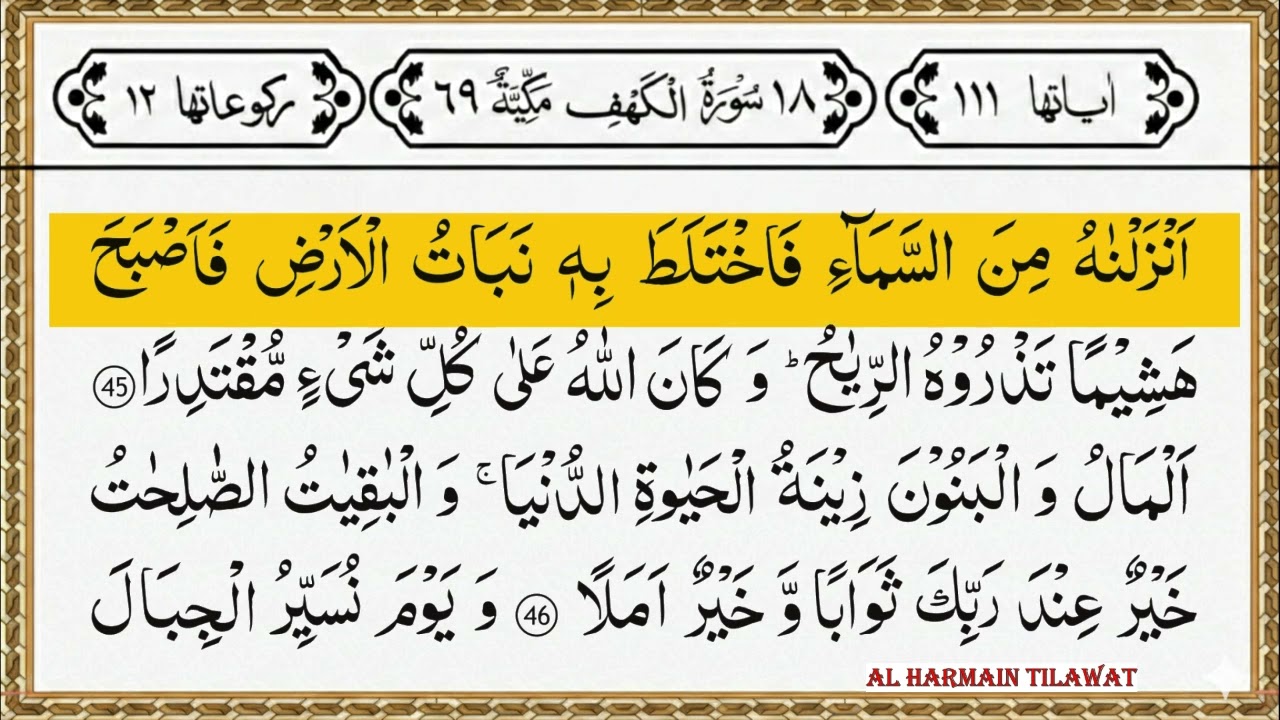 اٰیاتها ١١١
١٨ سُوْرَةُ الْكَهْفِ مَكِّیَّةٌ ٦٩
ركوعاتها ١٢
اَنْزَلْنٰهُ مِنَ السَّمَآءِ فَاخْتَلَطَ بِهٖ نَبَاتُ الْاَرْضِ فَاَصْبَحَ
هَشِیْمًا تَذْرُوْهُ الرِّیٰحُ ؕ وَ كَانَ اللّٰهُ عَلٰى كُلِّ شَیْءٍ مُّقْتَدِرًا 45
اَلْمَالُ وَ الْبَنُوْنَ زِیْنَةُ الْحَیٰوةِ الدُّنْیَا ۚ وَ الْبٰقِیٰتُ الصّٰلِحٰتُ
خَیْرٌ عِنْدَ رَبِّكَ ثَوَابًا وَّ خَیْرٌ اَمَلًا 46 وَ یَوْمَ نُسَیِّرُ الْجِبَالَ
AL HARMAIN TILAWAT